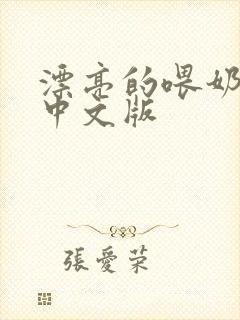 漂亮的喂奶
中文版
張愛荣